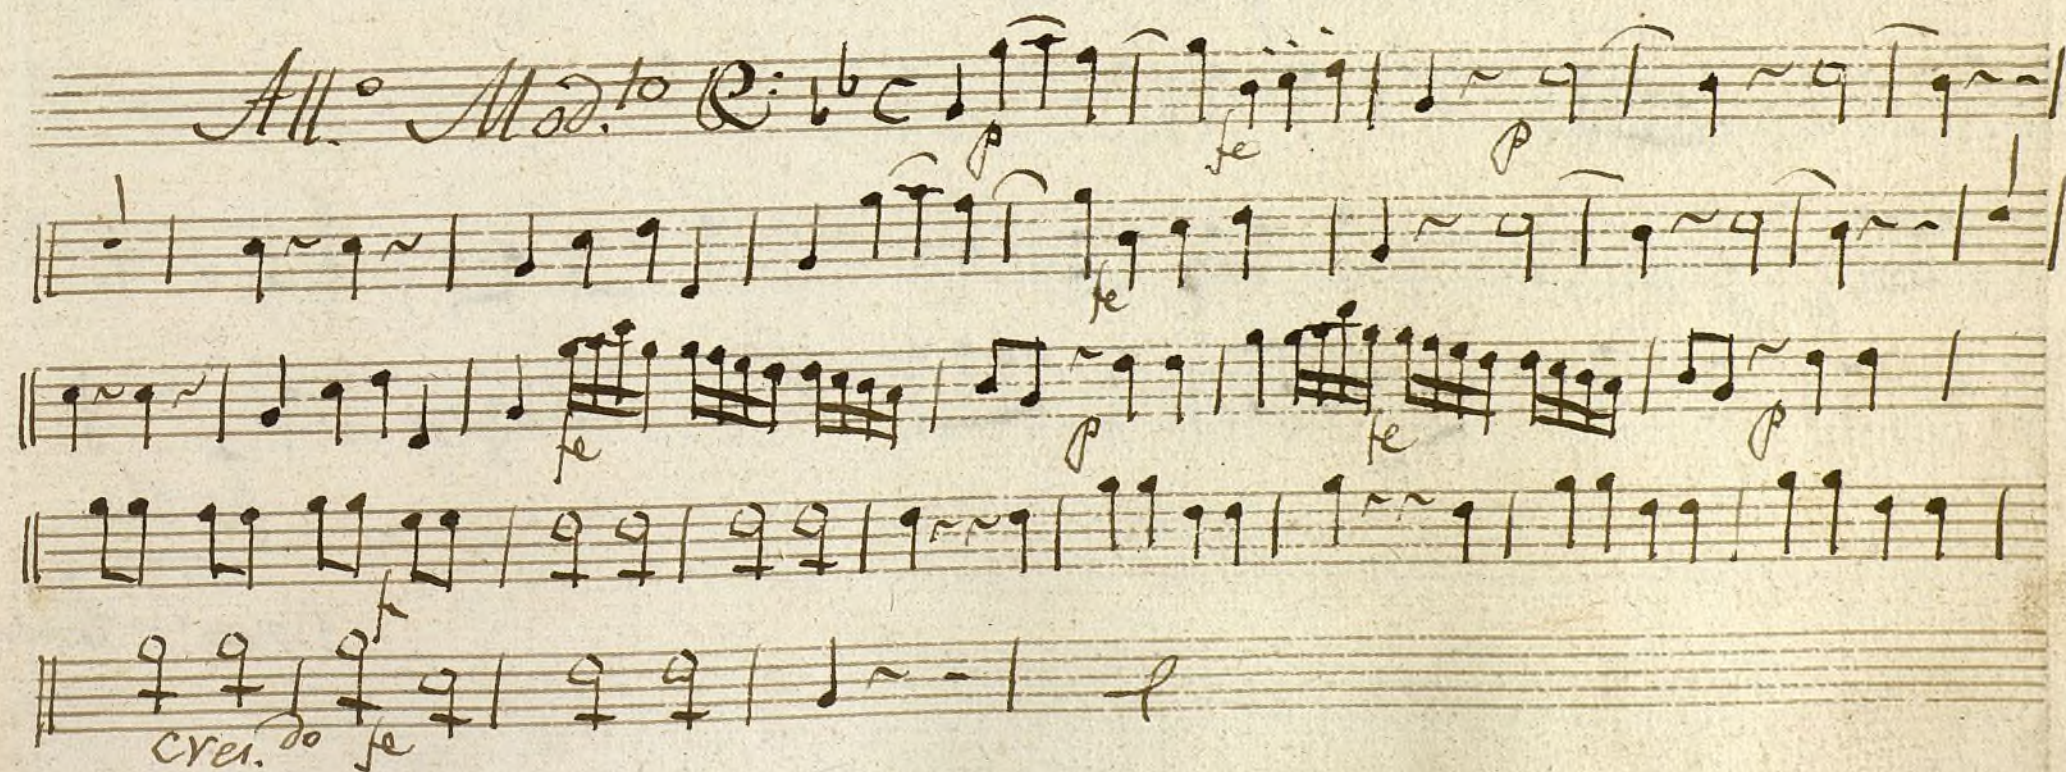 All.º Mod.to C
p fe p
fe
fe p fe p
f
cres.do fe